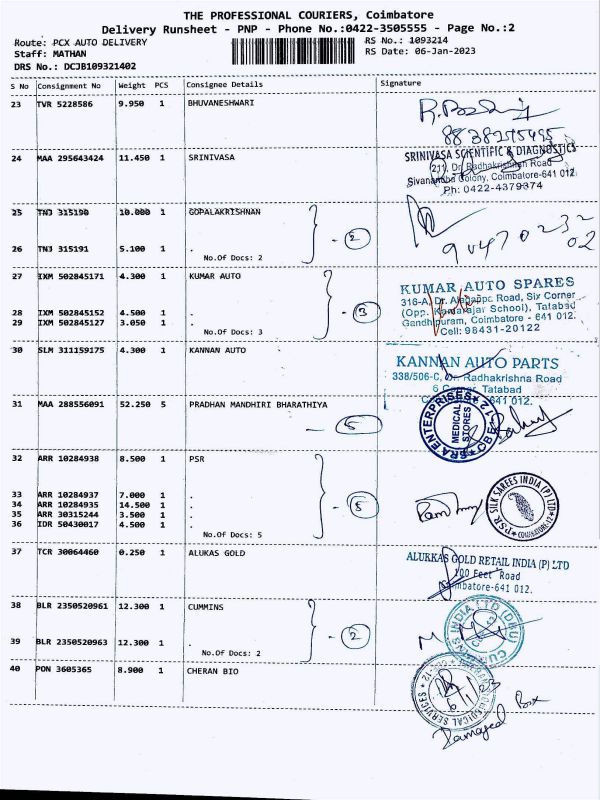 THE PROFESSIONAL COURIERS, Coimbatore
Delivery Runsheet - PNP - Phone No.:0422-3505555 - Page No.:2
Route: PCX AUTO DELIVERY
RS No.: 1093214
Staff: MATHAN
RS Date: 06-Jan-2023
DRS No.: DCJB109321402
S No Consignment No Weight PCS Consignee Details Signature
23 TVR 5228586 9.950 1 BHUVANESHWARI
24 MAA 295643424 11.450 1 SRINIVASA
SRINIVASA SCIENTIFIC & DIAGNOSTICS
211, Dr. Radhakrishnan Road
Sivanandha Colony, Coimbatore-641 012.
Ph: 0422-4379374
25 TNJ 315190 10.000 1 GOPALAKRISHNAN
- 2
90470232
02
26 TNJ 315191 5.100 1 .
No.Of Docs: 2
27 IXM 502845171 4.300 1 KUMAR AUTO
KUMAR AUTO SPARES
316-A, Dr. Alagappa Road, Six Corner
28 IXM 502845152 4.500 1 .
- 3
(Opp. Kamarajar School), Tatabad
29 IXM 502845127 3.050 1 .
Gandhipuram, Coimbatore - 641 012.
No.Of Docs: 3
Cell: 98431-20122
30 SLM 311159175 4.300 1 KANNAN AUTO
KANNAN AUTO PARTS
338/506-C, Dr. Radhakrishna Road
6 Corner, Tatabad
641 012.
31 MAA 288556091 52.250 5 PRADHAN MANDHIRI BHARATHIYA
- 5
ENTERPRISES
MEDICAL
STORES
32 ARR 10284938 8.500 1 PSR
33 ARR 10284937 7.000 1 .
34 ARR 10284935 14.500 1 .
- 5
35 ARR 30315244 3.500 1 .
36 IDR 50430017 4.500 1 .
No.Of Docs: 5
PSR SILK SAREES INDIA (P) LTD
COIMBATORE-12
37 TCR 30064460 0.250 1 ALUKAS GOLD
ALUKKAS GOLD RETAIL INDIA (P) LTD
100 Feet Road
mbatore-641 012.
38 BLR 2350520961 12.300 1 CUMMINS
- 2
39 BLR 2350520963 12.300 1 .
No.Of Docs: 2
INDIA LTD (DBU)
40 PON 3605365 8.900 1 CHERAN BIO
MEDICAL SERVICES
6/1/23
Damaged Box